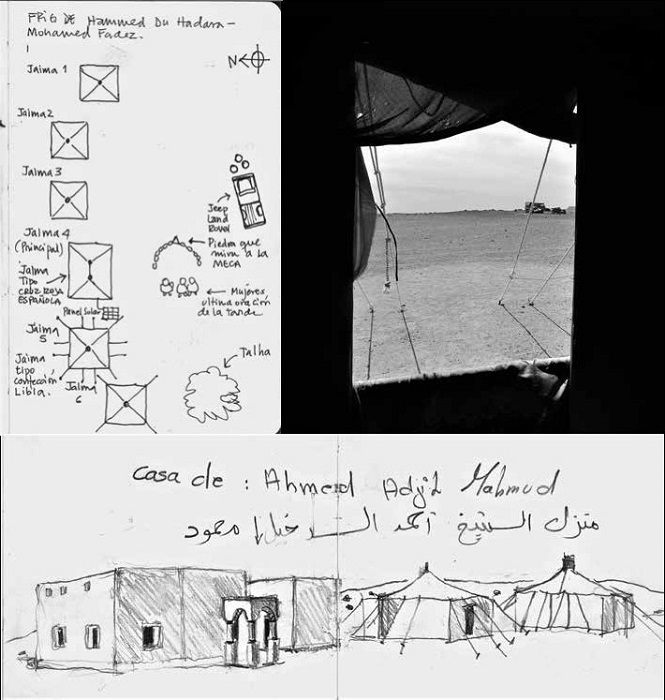 FRIG DE Hammed Du Hadara –
Mohamed Fadez.
N
Jaima 1
Jaima 2
Jaima 3
Jaima 4
(Principal)
Jaima
Tipo
CRUZ ROJA
ESPAÑOLA
Panel Solar
Jaima
5
Jaima
tipo
confección
Libia.
Jaima
6
Jeep
Land
ROVER
Piedra que
mira a la
MECA
Mujeres
ultima oración
de la tarde
Talha
Casa de : Ahmed Adjil Mahmud
منزل الشيخ أحمد محمود